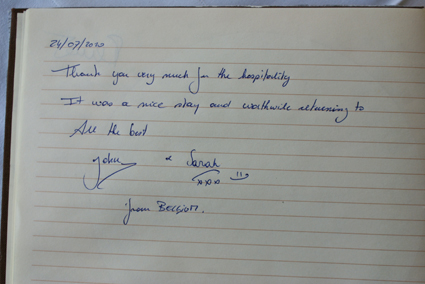 24/07/2020
Thank you very much for the hospitality
It was a nice stay and worthwile returning to
All the best
John & Sarah
xxx
from BELGIUM.